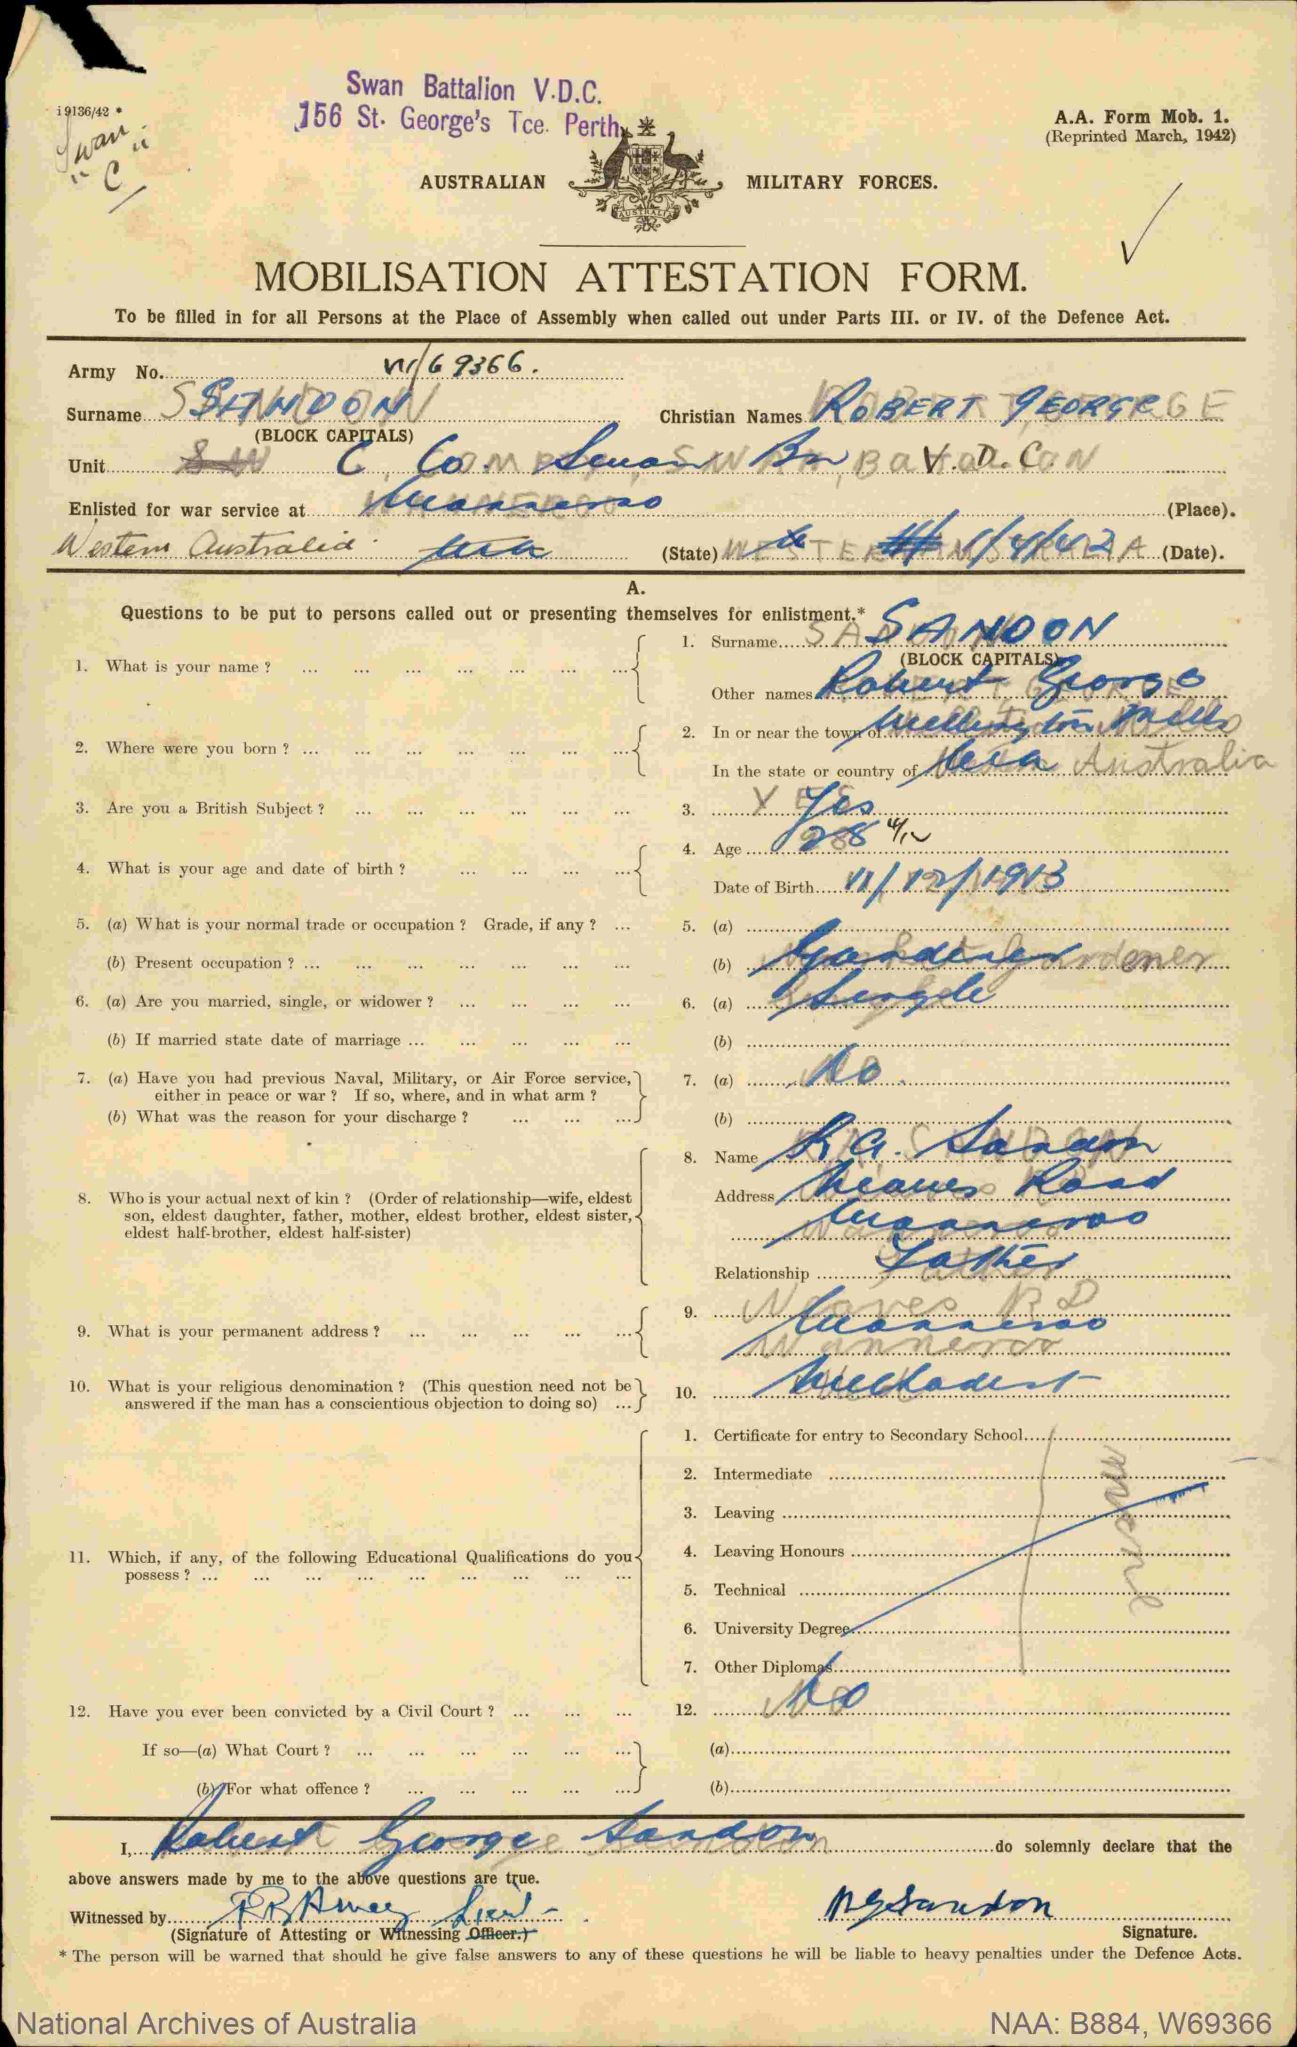 Swan Battalion V.D.C.
156 St. George's Tce. Perth.
i 9136/42 *
Swan
"C"
A.A. Form Mob. 1.
(Reprinted March, 1942)
AUSTRALIAN MILITARY FORCES.
AUSTRALIA
MOBILISATION ATTESTATION FORM.
To be filled in for all Persons at the Place of Assembly when called out under Parts III. or IV. of the Defence Act.
Army No. W/69366.
Surname SANDON Christian Names ROBERT GEORGE
(BLOCK CAPITALS)
Unit C Co. Swan Bn V.D.C.
Enlisted for war service at Wanneroo (Place).
Western Australia (State) WESTERN AUSTRALIA 1/4/42 (Date).
A.
Questions to be put to persons called out or presenting themselves for enlistment.*
1. What is your name ? 1. Surname SANDON
(BLOCK CAPITALS)
Other names Robert George
2. Where were you born ? 2. In or near the town of Wellington Mills
In the state or country of W.A. Australia
3. Are you a British Subject ? 3. Yes
4. What is your age and date of birth ? 4. Age 28 4/12
Date of Birth 11/12/1913
5. (a) What is your normal trade or occupation ? Grade, if any ? 5. (a)
(b) Present occupation ? (b) Gardener
6. (a) Are you married, single, or widower ? 6. (a) Single
(b) If married state date of marriage (b)
7. (a) Have you had previous Naval, Military, or Air Force service, 7. (a) No.
either in peace or war ? If so, where, and in what arm ?
(b) What was the reason for your discharge ? (b)
8. Name R.G. Sandon
8. Who is your actual next of kin ? (Order of relationship—wife, eldest Address Neaves Road
son, eldest daughter, father, mother, eldest brother, eldest sister, Wanneroo
eldest half-brother, eldest half-sister)
Relationship Father
9. What is your permanent address ? 9. Neaves RD
Wanneroo
10. What is your religious denomination ? (This question need not be 10. Methodist
answered if the man has a conscientious objection to doing so)
1. Certificate for entry to Secondary School
2. Intermediate
3. Leaving
11. Which, if any, of the following Educational Qualifications do you 4. Leaving Honours
possess ?
5. Technical
6. University Degree
7. Other Diplomas
12. Have you ever been convicted by a Civil Court ? 12. No
If so—(a) What Court ? (a)
(b) For what offence ? (b)
I, Robert George Sandon do solemnly declare that the
above answers made by me to the above questions are true.
Witnessed by Lieut RGSandon
(Signature of Attesting or Witnessing Officer.) Signature.
* The person will be warned that should he give false answers to any of these questions he will be liable to heavy penalties under the Defence Acts.
National Archives of Australia NAA: B884, W69366